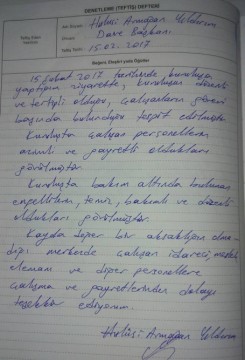 DENETLEME (TEFTİŞ) DEFTERİ
Hulusi Armağan Yıldırım
Daire Başkanı
15.02.2017
15 Şubat 2017 tarihinde kuruluşa
yaptığım ziyarette, kuruluşun düzenli
ve tertipli olduğu, çalışanların görevi
başında bulunduğu tespit edilmiştir.
Kuruluşta çalışan personellerin
azimli ve gayretli oldukları
görülmüştür.
Kuruluşta bakım altında bulunan
engellilerin, temiz, bakımlı ve düzenli
oldukları görülmüştür.
Kayda değer bir aksaklığın olma-
dığı merkezde çalışan idareci, meslek
elemanı ve diğer personellere
çalışma ve gayretlerinden dolayı
teşekkür ediyorum.
Hulusi Armağan Yıldırım